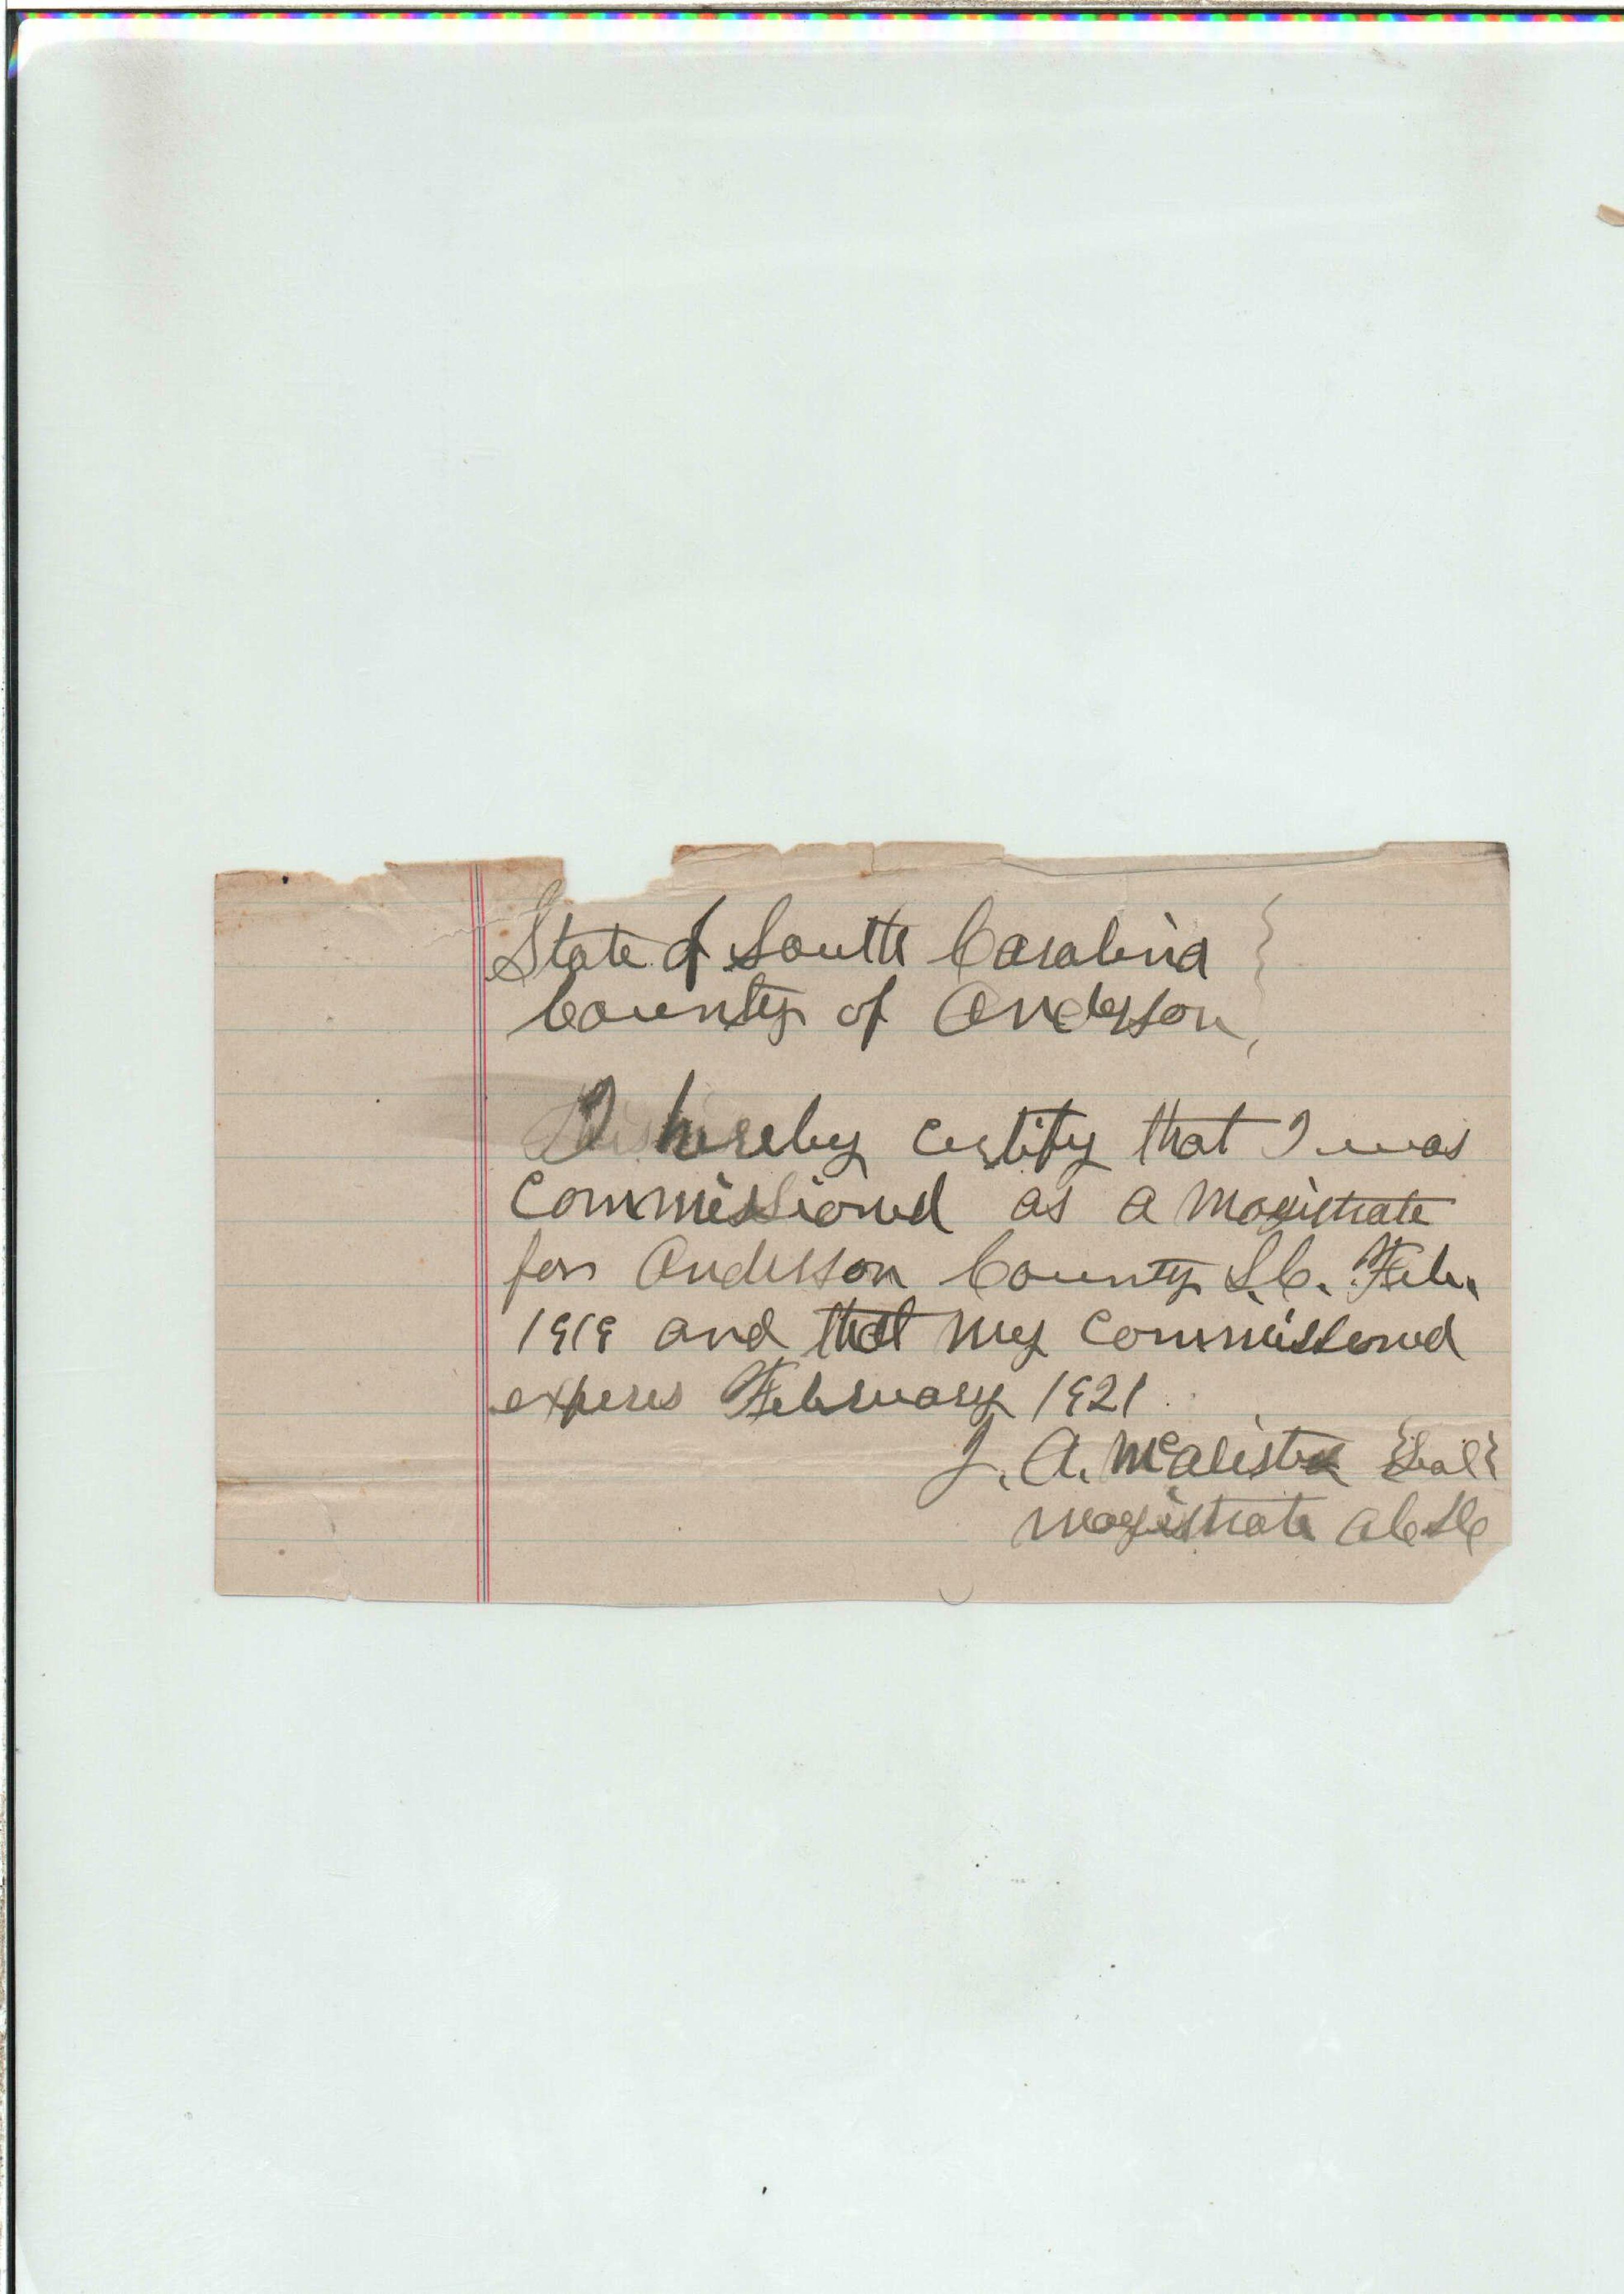 State of South Carolina }
County of Anderson,
I hereby certify that I was
Commissioned as a Magistrate
for Anderson County S.C. Feb.
1919 and that my Commissioned
expires February 1921
J. A. McAlister {Seal}
Magistrate A C S C